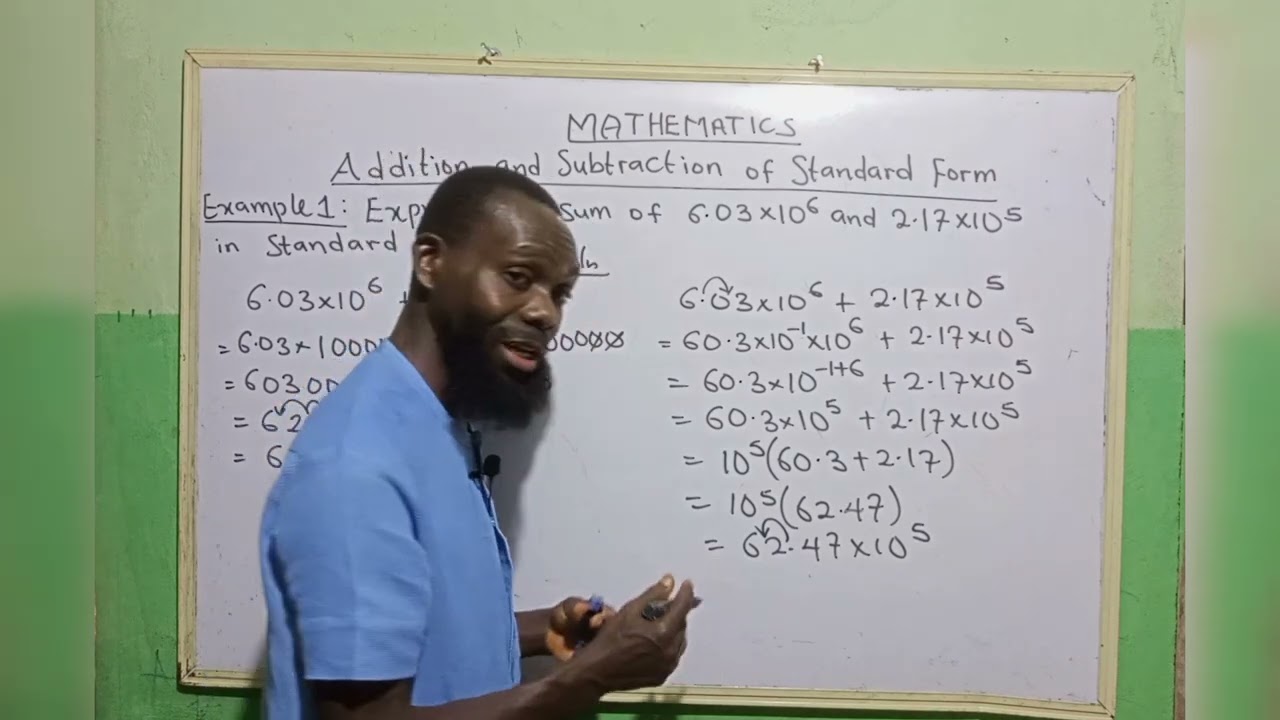 MATHEMATICS
Addition and Subtraction of Standard Form
Example 1: sum of 6.03×10⁶ and 2.17×10⁵
in Standard
6.03×10⁶
= 6.03×1000
= 60300
= 62
= 6
6.03×10⁶ + 2.17×10⁵
= 60.3×10⁻¹×10⁶ + 2.17×10⁵
= 60.3×10⁻¹⁺⁶ + 2.17×10⁵
= 60.3×10⁵ + 2.17×10⁵
= 10⁵(60.3+2.17)
= 10⁵(62.47)
= 62.47×10⁵